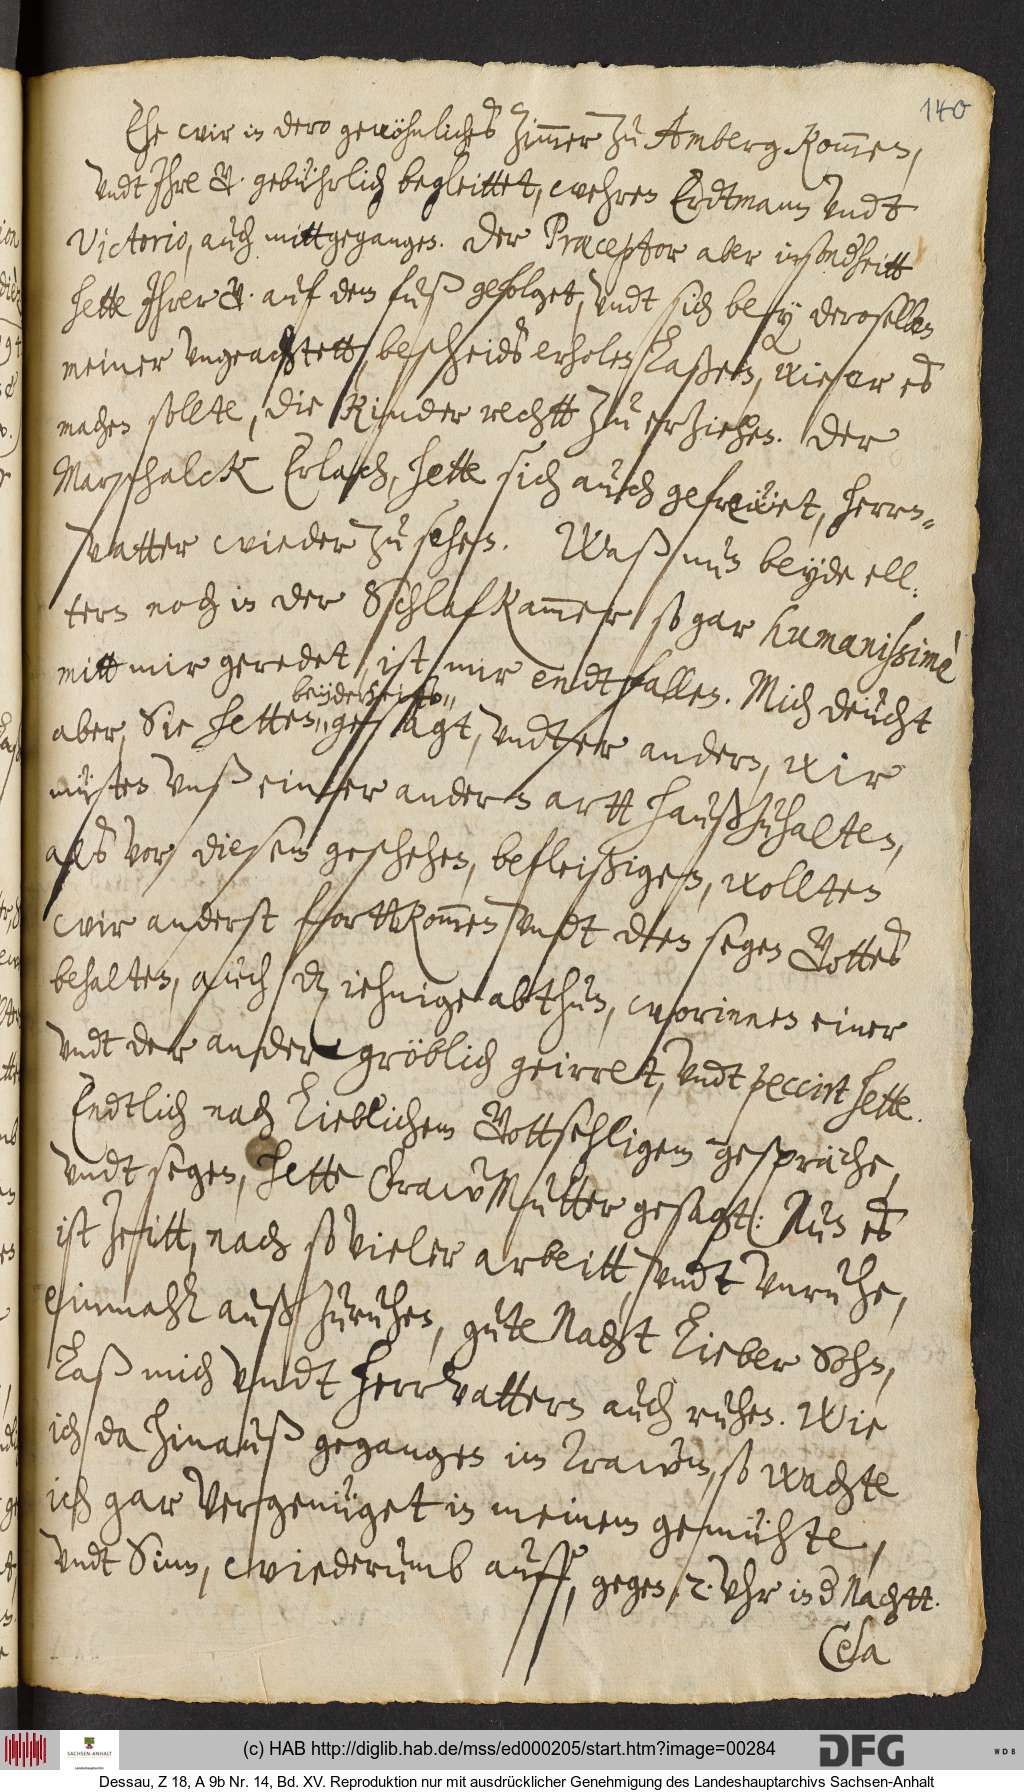 140
Ehe wir in dero gewöhnliches Zim̄er zu Amberg kom̄en,
undt Ihre G. gebührlich begleittet, wehren Erdtmann undt
Victorio, auch mittgegangen. Der Præceptor aber insonderheitt
hette Ihrer G. auf dem fuß gefolget, undt sich bey deroselben
meiner ungeachtett, bescheids erholen laßen, wie er es
machen sollte, die Kinder rechtt zu erziehen. Der
Marschalck Erlach, hette sich auch gefreẅet, herrn-
vatter wieder zu sehen. Waß nun beyde ell-
tern noch in der Schlafkam̄er so gar humanissimè
mitt mir geredet, ist mir endtfallen. Mich deücht
beyderseits
aber, Sie hetten, gesagt, undter andern, wir
müsten unß einer andern artt haußzuhalten,
als vor diesem geschehen, befleißigen, wollten
wir anderst forttkom̄en undt den segen Gottes
behalten, auch dz iehnige abthun, worinnen einer
undt der ander gröblich geirret, undt peccirt hette.
Endtlich nach lieblichem Gottsehligem gespräche,
undt segen, hette Fraw Mutter gesagt: Nun es
ist zeitt, nach so vieler arbeitt, undt unruhe,
einmahl außzuruhen, gute Nacht lieber Sohn,
laß mich undt herrvattern auch ruhen. Wie
ich da hinauß gegangen im Trawm, so wachte
ich gar vergenüget in meinem gemühte,
undt Sinn, wiederumb auff, gegen, 2. Uhr in d Nachtt.
Cela
(c) HAB http://diglib.hab.de/mss/ed000205/start.htm?image=00284
SACHSEN-ANHALT
DFG
WDB
Dessau, Z 18, A 9b Nr. 14, Bd. XV. Reproduktion nur mit ausdrücklicher Genehmigung des Landeshauptarchivs Sachsen-Anhalt